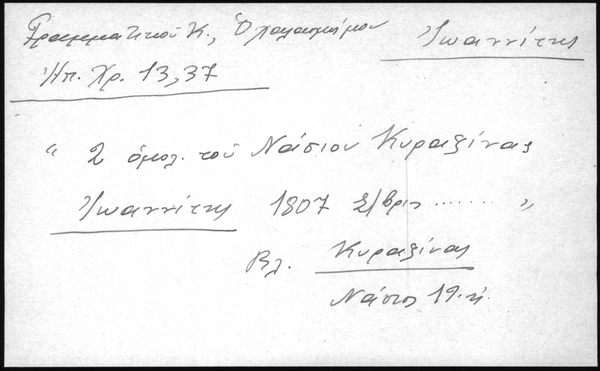 Γραμματικού Κ., Ὁ παλαιστήμου Ἰωαννίτης
Ἠπ. Χρ. 13,37
" 2 ὁμολ. τοῦ Νάσιου Κυραξίνας
Ἰωαννίτης 1807 2/βρις ....... "
Βλ. Κυραξίνας
Νάσιος 19.